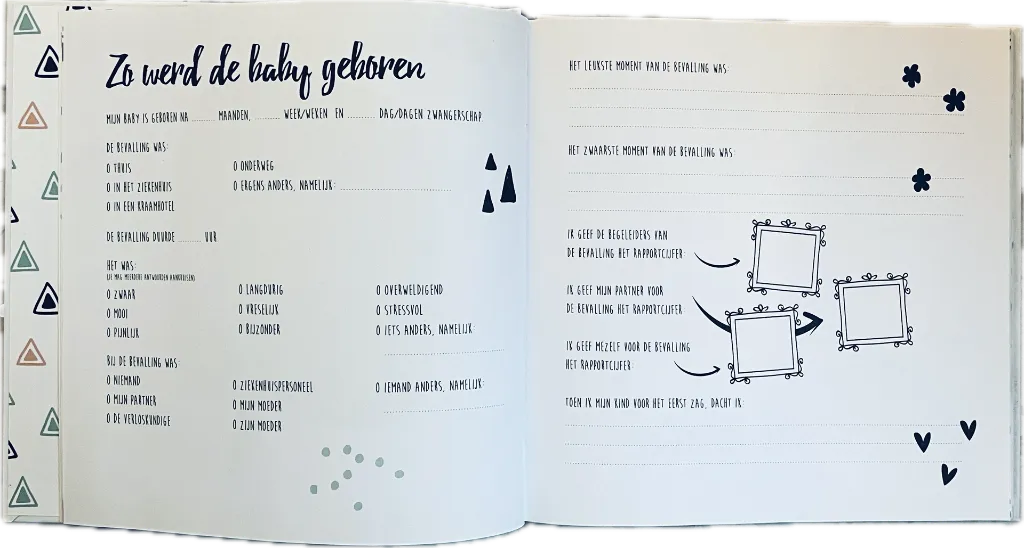 Zo werd de baby geboren
MIJN BABY IS GEBOREN NA ........ MAANDEN, ........ WEEK/WEKEN EN ......... DAG/DAGEN ZWANGERSCHAP.
DE BEVALLING WAS:
O THUIS
O IN HET ZIEKENHUIS
O IN EEN KRAAMHOTEL
O ONDERWEG
O ERGENS ANDERS, NAMELIJK:
DE BEVALLING DUURDE ......... UUR
HET WAS:
(JE MAG MEERDERE ANTWOORDEN AANKRUISEN)
O ZWAAR
O MOOI
O PIJNLIJK
O LANGDURIG
O VRESELIJK
O BIJZONDER
O OVERWELDIGEND
O STRESSVOL
O IETS ANDERS, NAMELIJK:
BIJ DE BEVALLING WAS:
O NIEMAND
O MIJN PARTNER
O DE VERLOSKUNDIGE
O ZIEKENHUISPERSONEEL
O MIJN MOEDER
O ZIJN MOEDER
O IEMAND ANDERS, NAMELIJK:
HET LEUKSTE MOMENT VAN DE BEVALLING WAS:
HET ZWAARSTE MOMENT VAN DE BEVALLING WAS:
IK GEEF DE BEGELEIDERS VAN
DE BEVALLING HET RAPPORTCIJFER:
IK GEEF MIJN PARTNER VOOR
DE BEVALLING HET RAPPORTCIJFER:
IK GEEF MEZELF VOOR DE BEVALLING
HET RAPPORTCIJFER:
TOEN IK MIJN KIND VOOR HET EERST ZAG, DACHT IK: